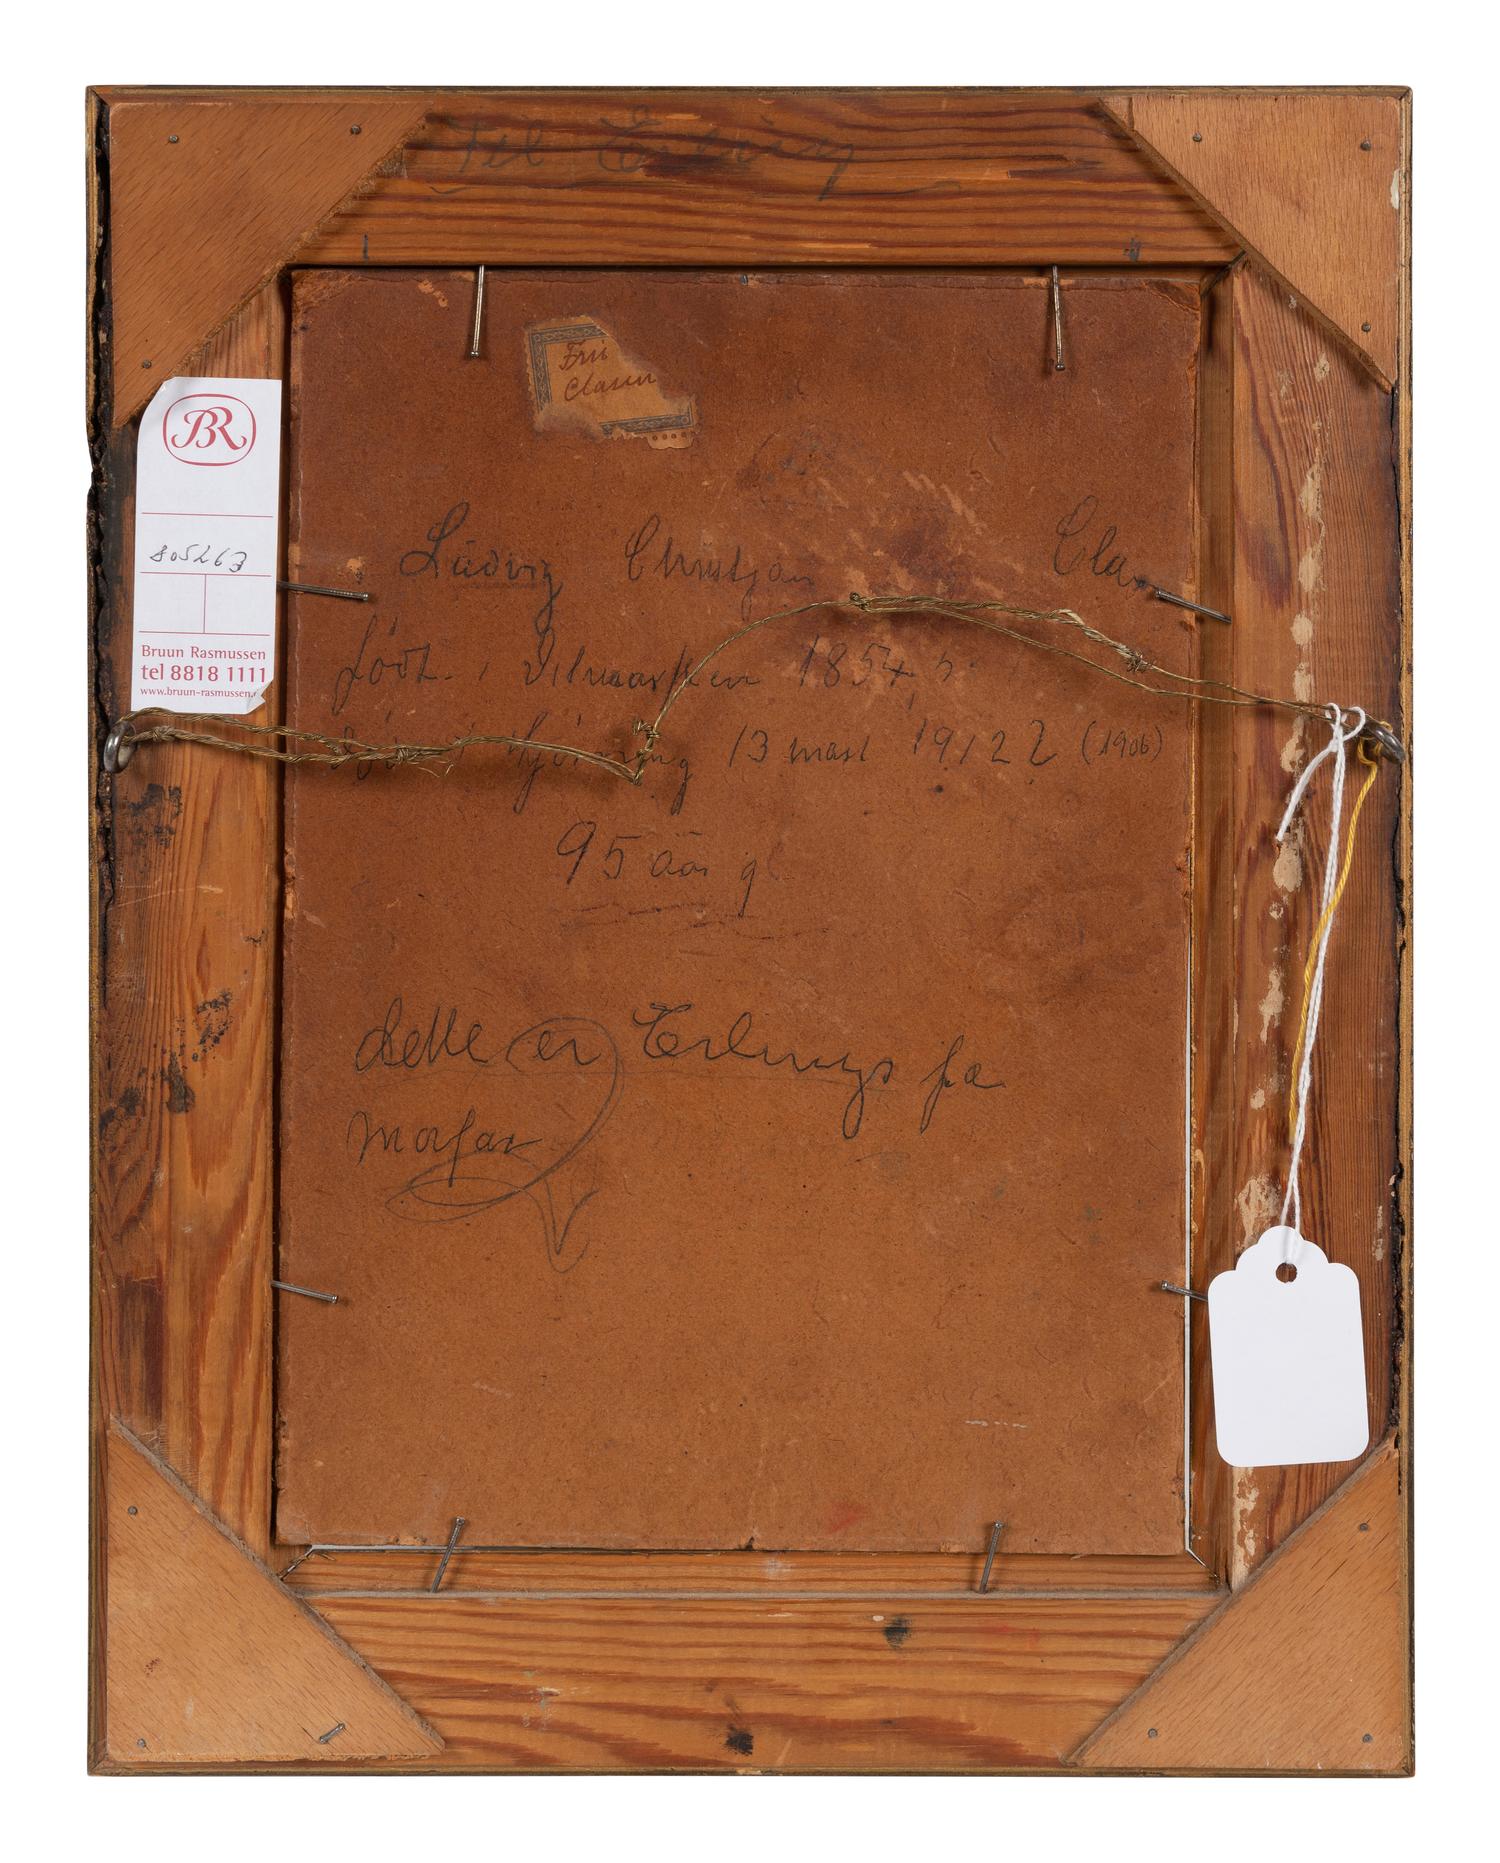 Til Erling
Frú
Clasen
BR
805263
Bruun Rasmussen
tel 8818 1111
www.bruun-rasmussen.
Ludvig Christjan Clas
født. i 1854
Hjörring 13 mast 19/22 (1906)
95 åår g
dette er Erlings fa
Morfar